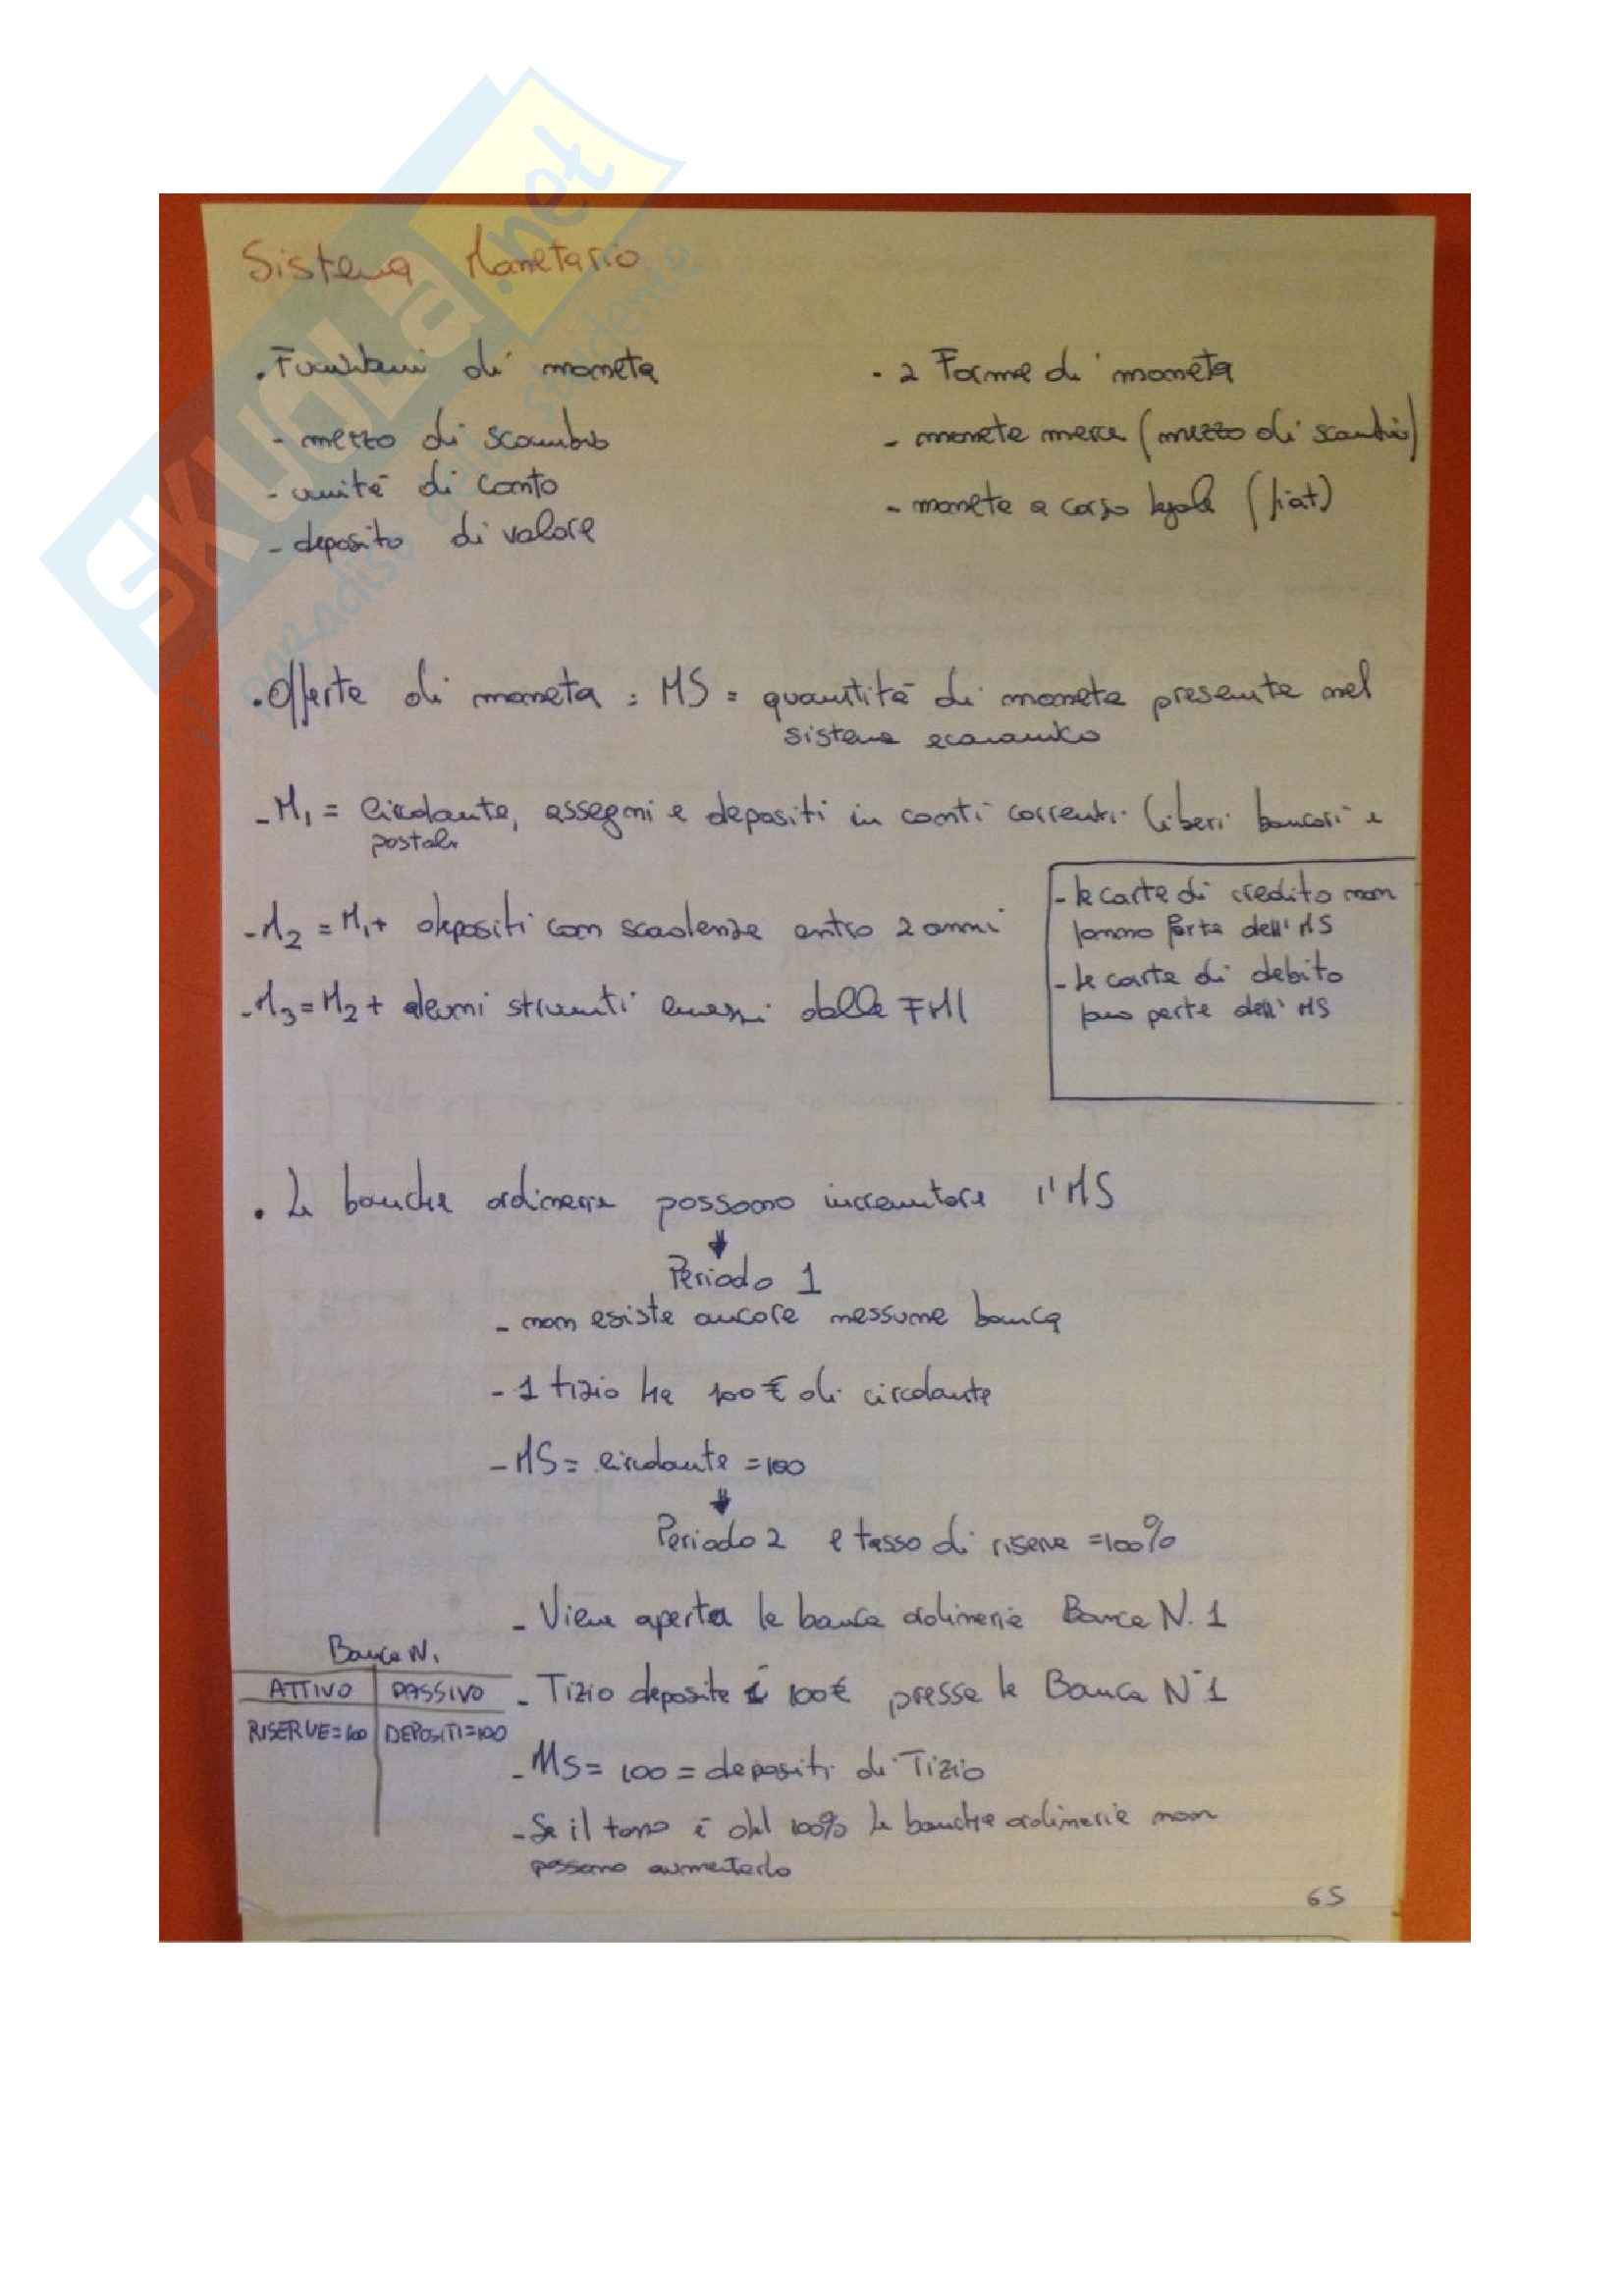 SKUOLa.net
il paradiso dello studente
Sistema Monetario
. Funzioni di moneta
- mezzo di scambio
- unità di conto
- deposito di valore
- 2 Forme di moneta
- moneta merce (mezzo di scambio)
- moneta a corso legale (fiat)
. Offerta di moneta : MS = quantità di moneta presente nel
sistema economico
- M1 = Circolante, assegni e depositi in conti correnti liberi bancari e
postali
- M2 = M1 + depositi con scadenza entro 2 anni
- M3 = M2 + alcuni strumenti emessi dalle FMI
- le carte di credito non
fanno parte dell'MS
- le carte di debito
fano parte dell'MS
. Le banche ordinarie possono incrementare l'MS
Periodo 1
- non esiste ancora nessuna banca
- 1 tizio ha 100€ di circolante
- MS = circolante = 100
Periodo 2 e tasso di riserva = 100%
- Viene aperta la banca ordinaria Banca N. 1
- Tizio deposita i 100€ presso la Banca N°1
- MS = 100 = depositi di Tizio
- Se il tasso è del 100% le banche ordinarie non
possono aumentarlo
Banca N.1
ATTIVO PASSIVO
RISERVE=100 DEPOSITI=100
65